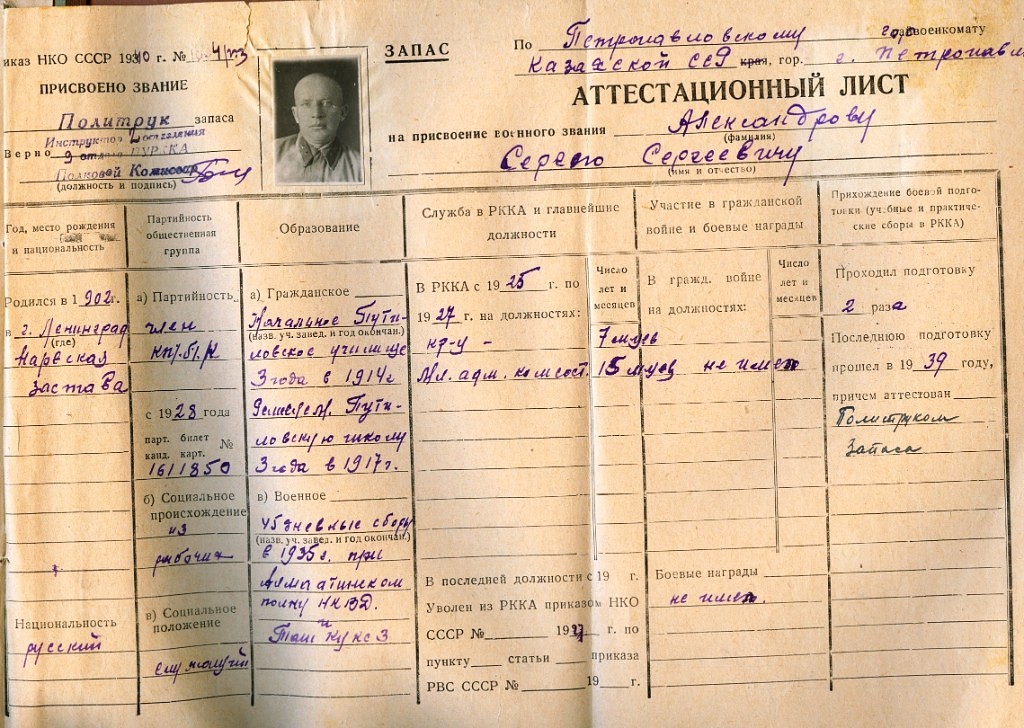 иказ НКО СССР 1940 г. №
ПРИСВОЕНО ЗВАНИЕ
Политрук запаса
Инструктор отделения
Верно 3 отдела ПУРККА
Полковой Комиссар
(должность и подпись)
ЗАПАС
По Петропавловскому горвоенкомату
Казахской ССР края, гор. г. Петропавл
АТТЕСТАЦИОННЫЙ ЛИСТ
на присвоение военного звания Александрову
(фамилия)
Сергею Сергеевичу
(имя и отчество)
Год, место рождения
и национальность
Родился в 1902г.
в г. Ленинград
(где)
Нарвская
застава
Национальность
русский
Партийность
общественная
группа
а) Партийность
член
КП/б/
с 1928 года
парт. билет №
канд. карт.
1611850
б) Социальное
происхождение
из
рабочих
в) Социальное
положение
служащий
Образование
а) Гражданское
Начальное Пути-
(назв. уч. завед. и год окончан.)
ловское училище
3 года в 1914г
Пути-
ловскую школу
3 года в 1917г.
в) Военное
45 дневные сборы
(назв. уч. завед. и год окончан.)
в 1935г. при
Алмаатинском
полку НКВД.
и
Служба в РККА и главнейшие
должности
В РККА с 1925 г. по
1927 г. на должностях:
кр-у -
Мл. адм. комсост.
Число
лет и
месяцев
7 м-цев
15 м-цев
В последней должности с 19 г.
Уволен из РККА приказом НКО
СССР № 1937 г. по
пункту статьи приказа
РВС СССР № 19 г.
Участие в гражданской
войне и боевые награды
В гражд. войне
на должностях:
не имеет
Число
лет и
месяцев
Боевые награды
не имеет.
Прихождение боевой подго-
товки (учебные и практиче-
ские сборы в РККА)
Проходил подготовку
2 раза
Последнюю подготовку
прошел в 1939 году,
причем аттестован
Политруком
запаса